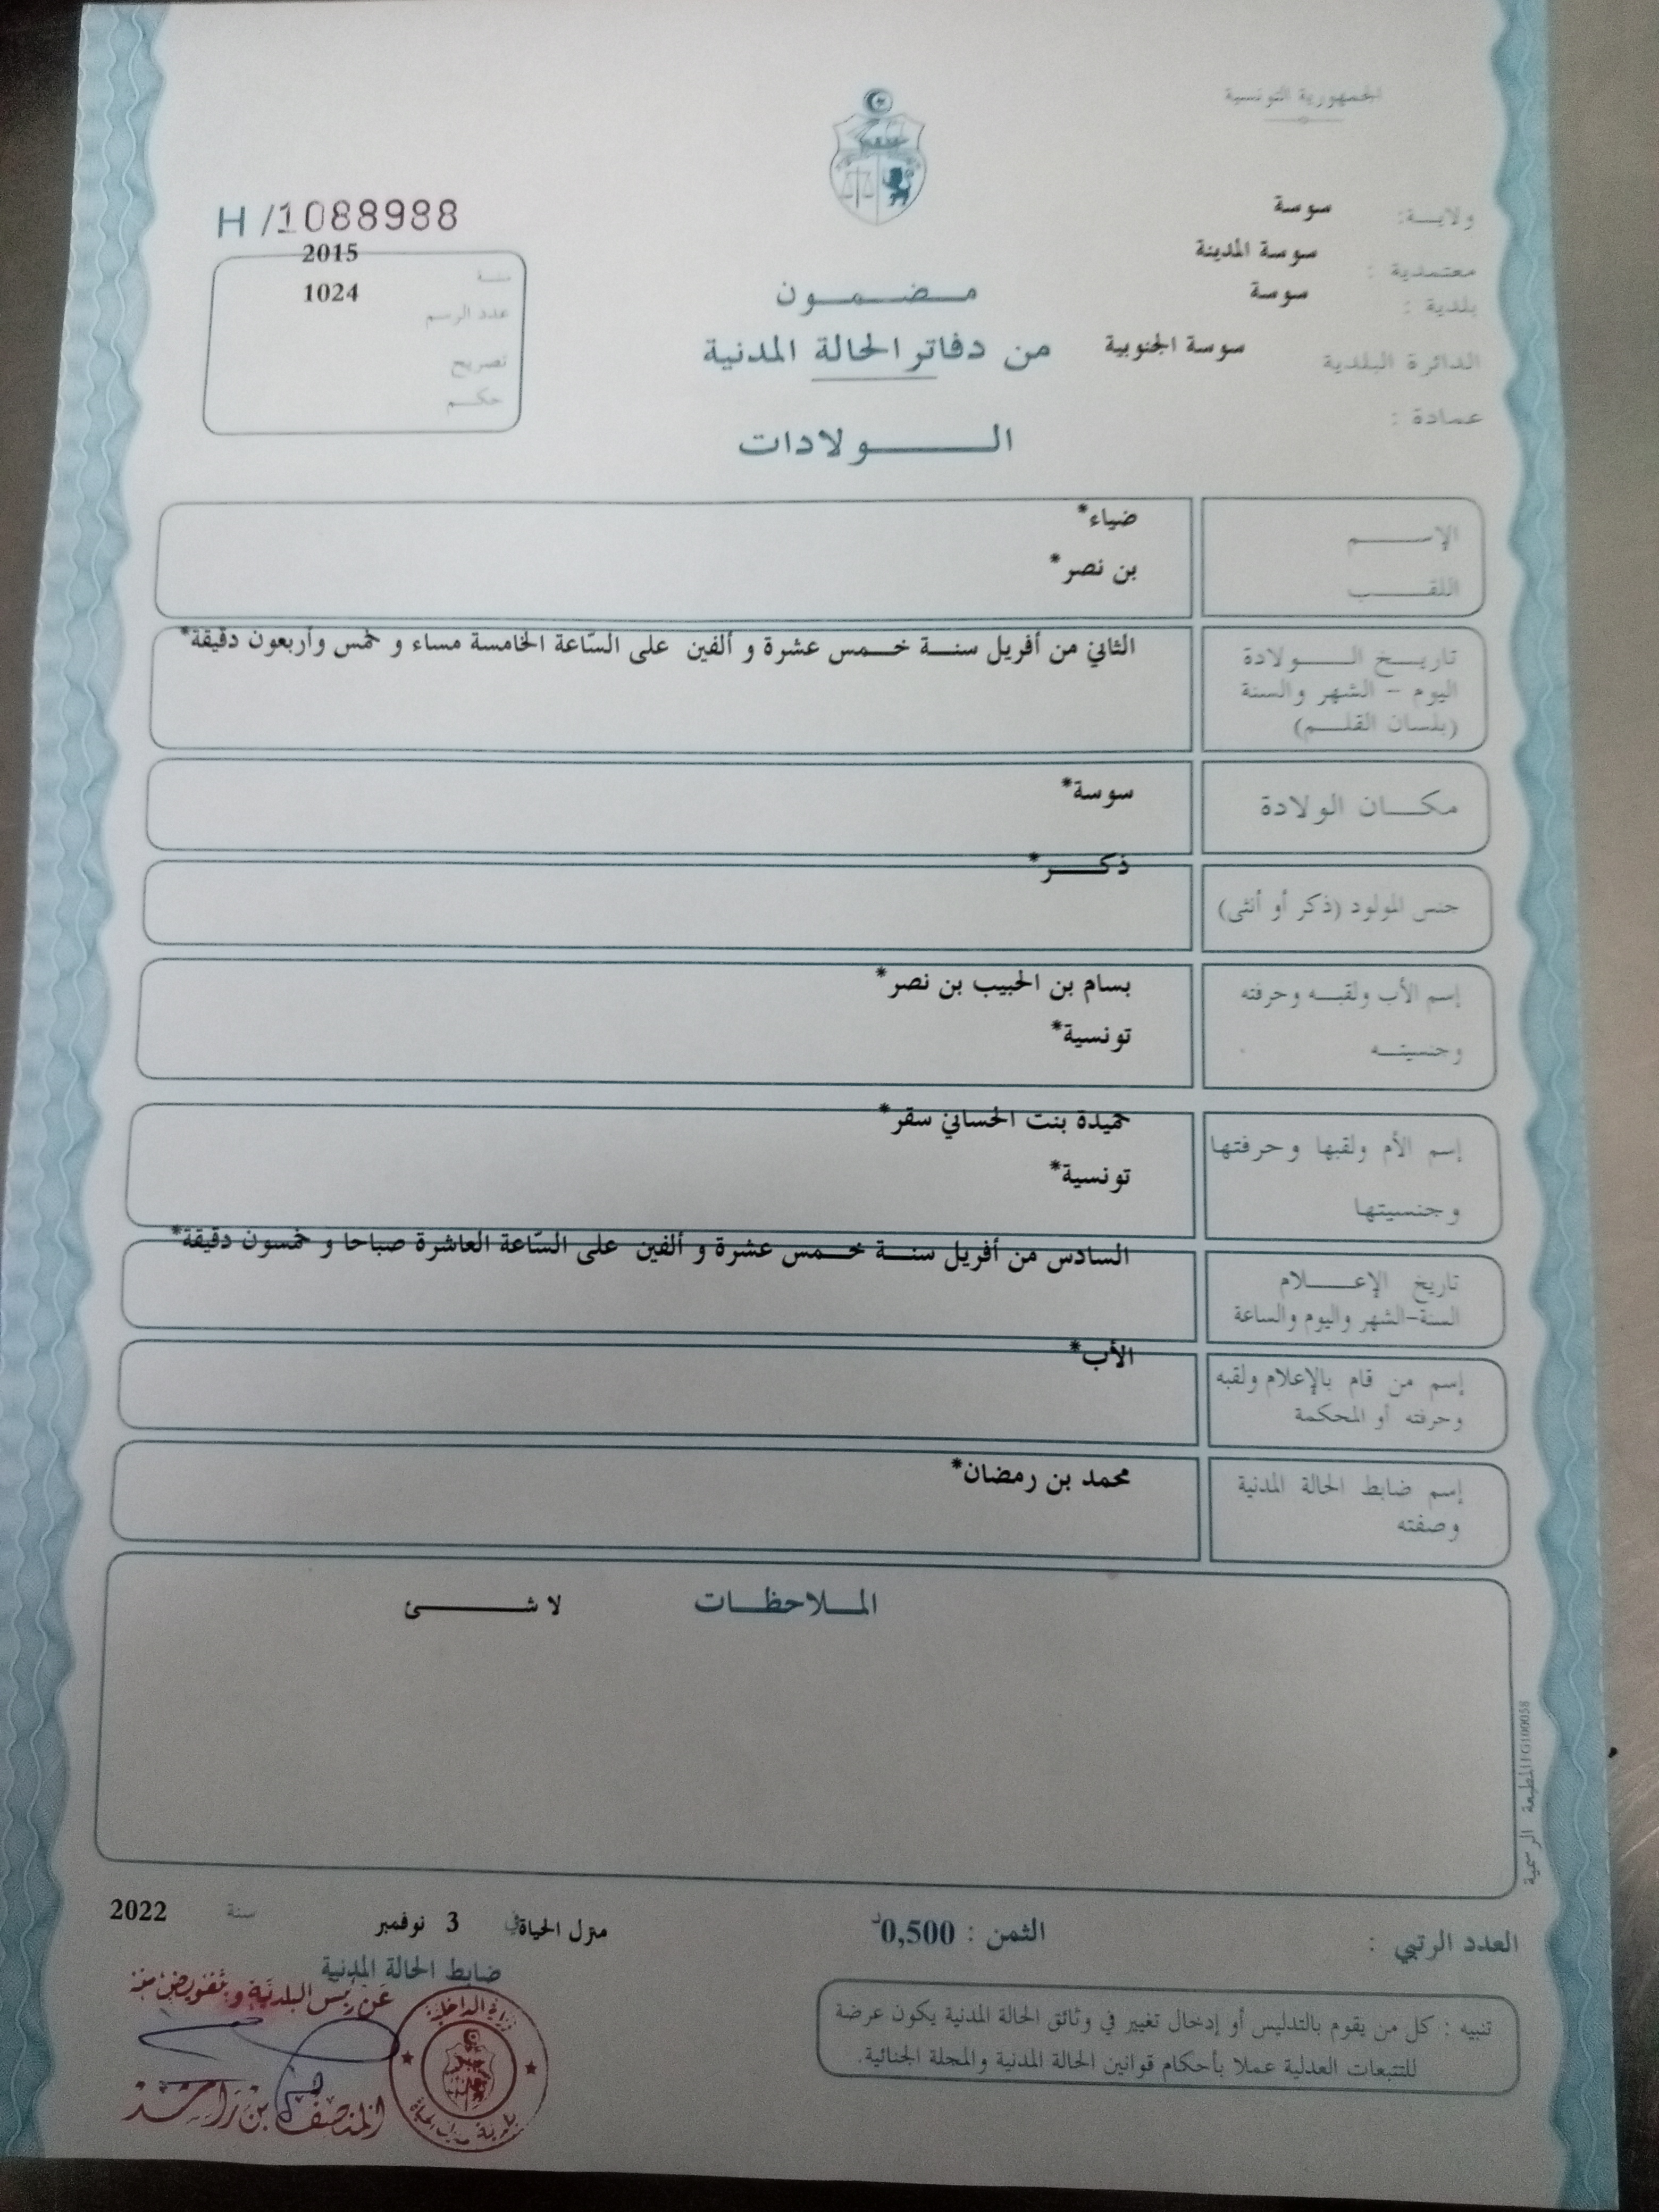 الجمهورية التونسية
ولايـــة: سوسة
معتمدية : سوسة المدينة
بلدية : سوسة
الدائرة البلدية سوسة الجنوبية
عمادة :
H /1088988
سنـة 2015
عدد الرسم 1024
تصريح
حكـــم
مـــضـــمـــون
من دفاتر الحالة المدنية
الـــــــولادات
الإســــــم ضياء*
اللقــــــب بن نصر*
تاريـــخ الـــــولادة الثاني من أفريل سنـــة خـــمس عشرة و ألفين على السّاعة الخامسة مساء و خمس وأربعون دقيقة*
اليوم – الشهر والسنة
(بلسان القلـــم)
مكـــان الولادة سوسة*
جنس المولود (ذكر أو أنثى) ذكـــــر*
إسم الأب ولقبـــه وحرفته بسام بن الحبيب بن نصر*
وجنسيتـــه تونسية*
إسم الأم ولقبها وحرفتها حميدة بنت الحساني سقر*
وجنسيتها تونسية*
تاريخ الإعـــــلام السادس من أفريل سنـــة خـــمس عشرة و ألفين على السّاعة العاشرة صباحا و خمسون دقيقة*
السنة-الشهر واليوم والساعة
إسم من قام بالإعلام ولقبه الأب*
وحرفته أو المحكمة
إسم ضابط الحالة المدنية محمد بن رمضان*
وصفته
المـــلاحظـــات لا شـــــــئ
المطبعة الرسمية
العدد الرتبي :
الثمن : 0,500د
منزل الحياة في 3 نوفمبر سنة 2022
ضابط الحالة المدنية
عن رئيس البلدية وبتفويض منه
المنصف بن راشد
وزارة الداخلية
تنبيه : كل من يقوم بالتدليس أو إدخال تغيير في وثائق الحالة المدنية يكون عرضة
للتتبعات العدلية عملا بأحكام قوانين الحالة المدنية والمجلة الجنائية.